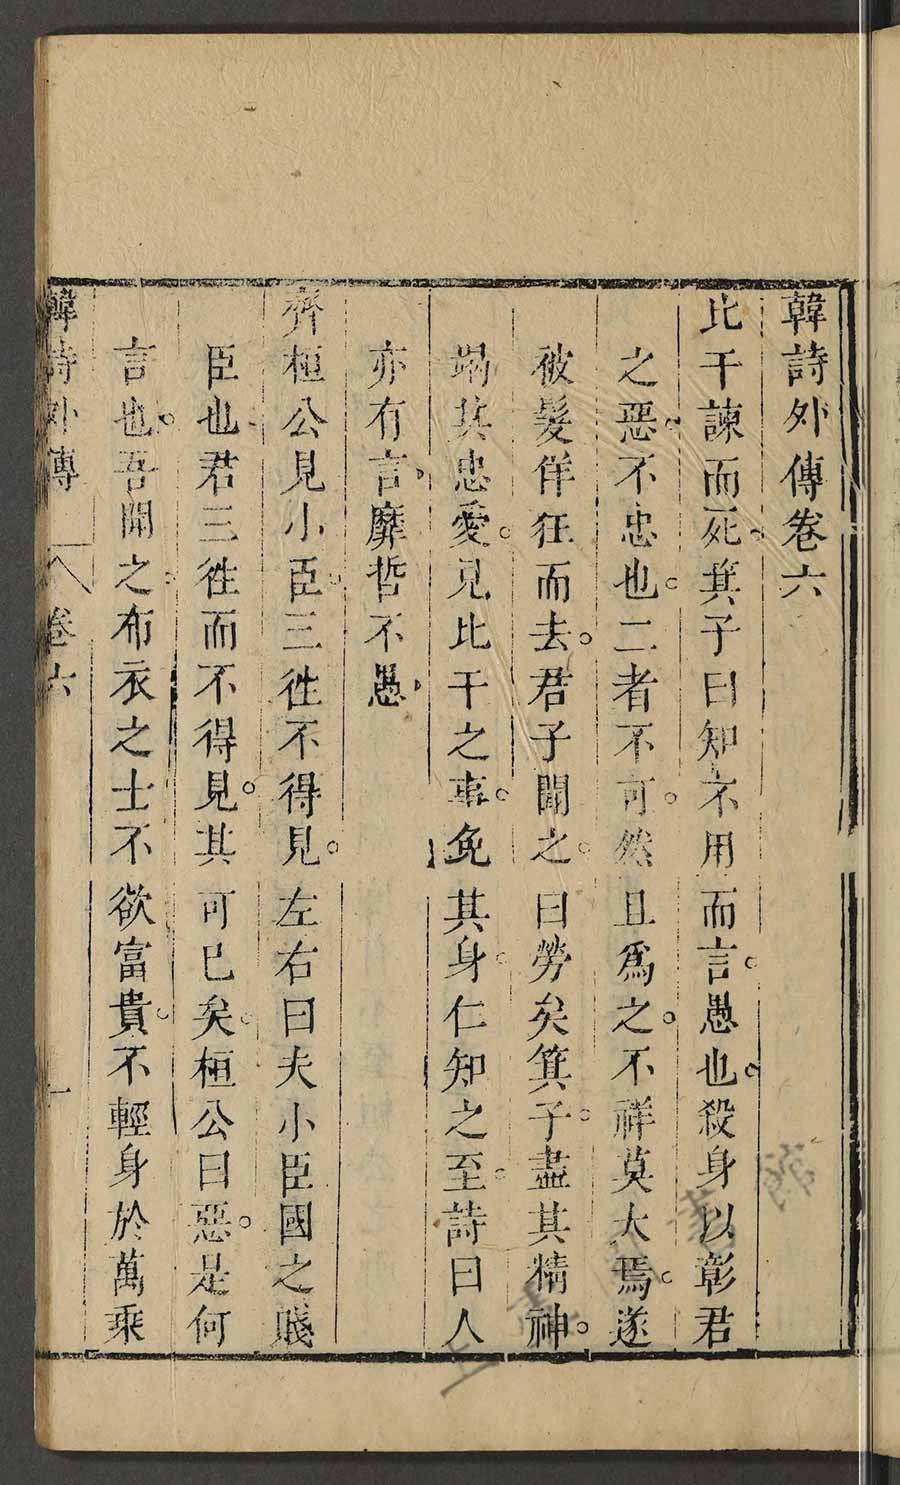 韓詩外傳卷六
比干諫而死。箕子曰知不用而言。愚也。殺身以彰君
之惡。不忠也。二者不可。然且爲之。不祥莫大焉。遂
被髮佯狂而去。君子聞之。曰勞矣箕子。盡其精神。
竭其忠愛。見比干之事。免其身。仁知之至。詩曰人
亦有言。靡哲不愚。
齊桓公見小臣。三徃不得見。左右曰夫小臣國之賤
臣也君三徃而不得見。其可已矣。桓公曰惡。是何
言也。吾聞之。布衣之士不欲富貴。不輕身於萬乘
韓詩外傳 卷六 一